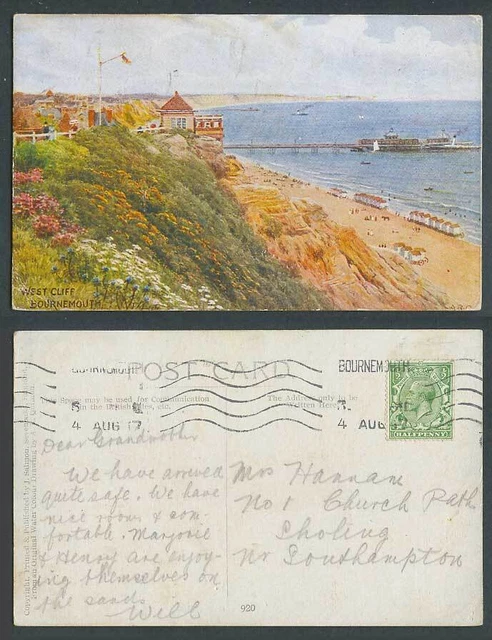 WEST CLIFF
BOURNEMOUTH.
POST CARD
BOURNEMOUTH
BOURNEMOUTH
4 AUG 17
4 AUG
may be used for Communication
in the British Isles, etc.
The Address only to be
Written Here.
HALFPENNY
Copyright. Printed & Published by J. Salmon,
From an Original Water Colour Drawing by
Dear Grandmother
We have arrived
quite safe. We have
nice room & com-
fortable. Marjorie
& Henry are enjoy-
ing themselves on
the sands
Will
Mrs Hannam
No 1 Church Path
Sholing
Nr Southampton
920